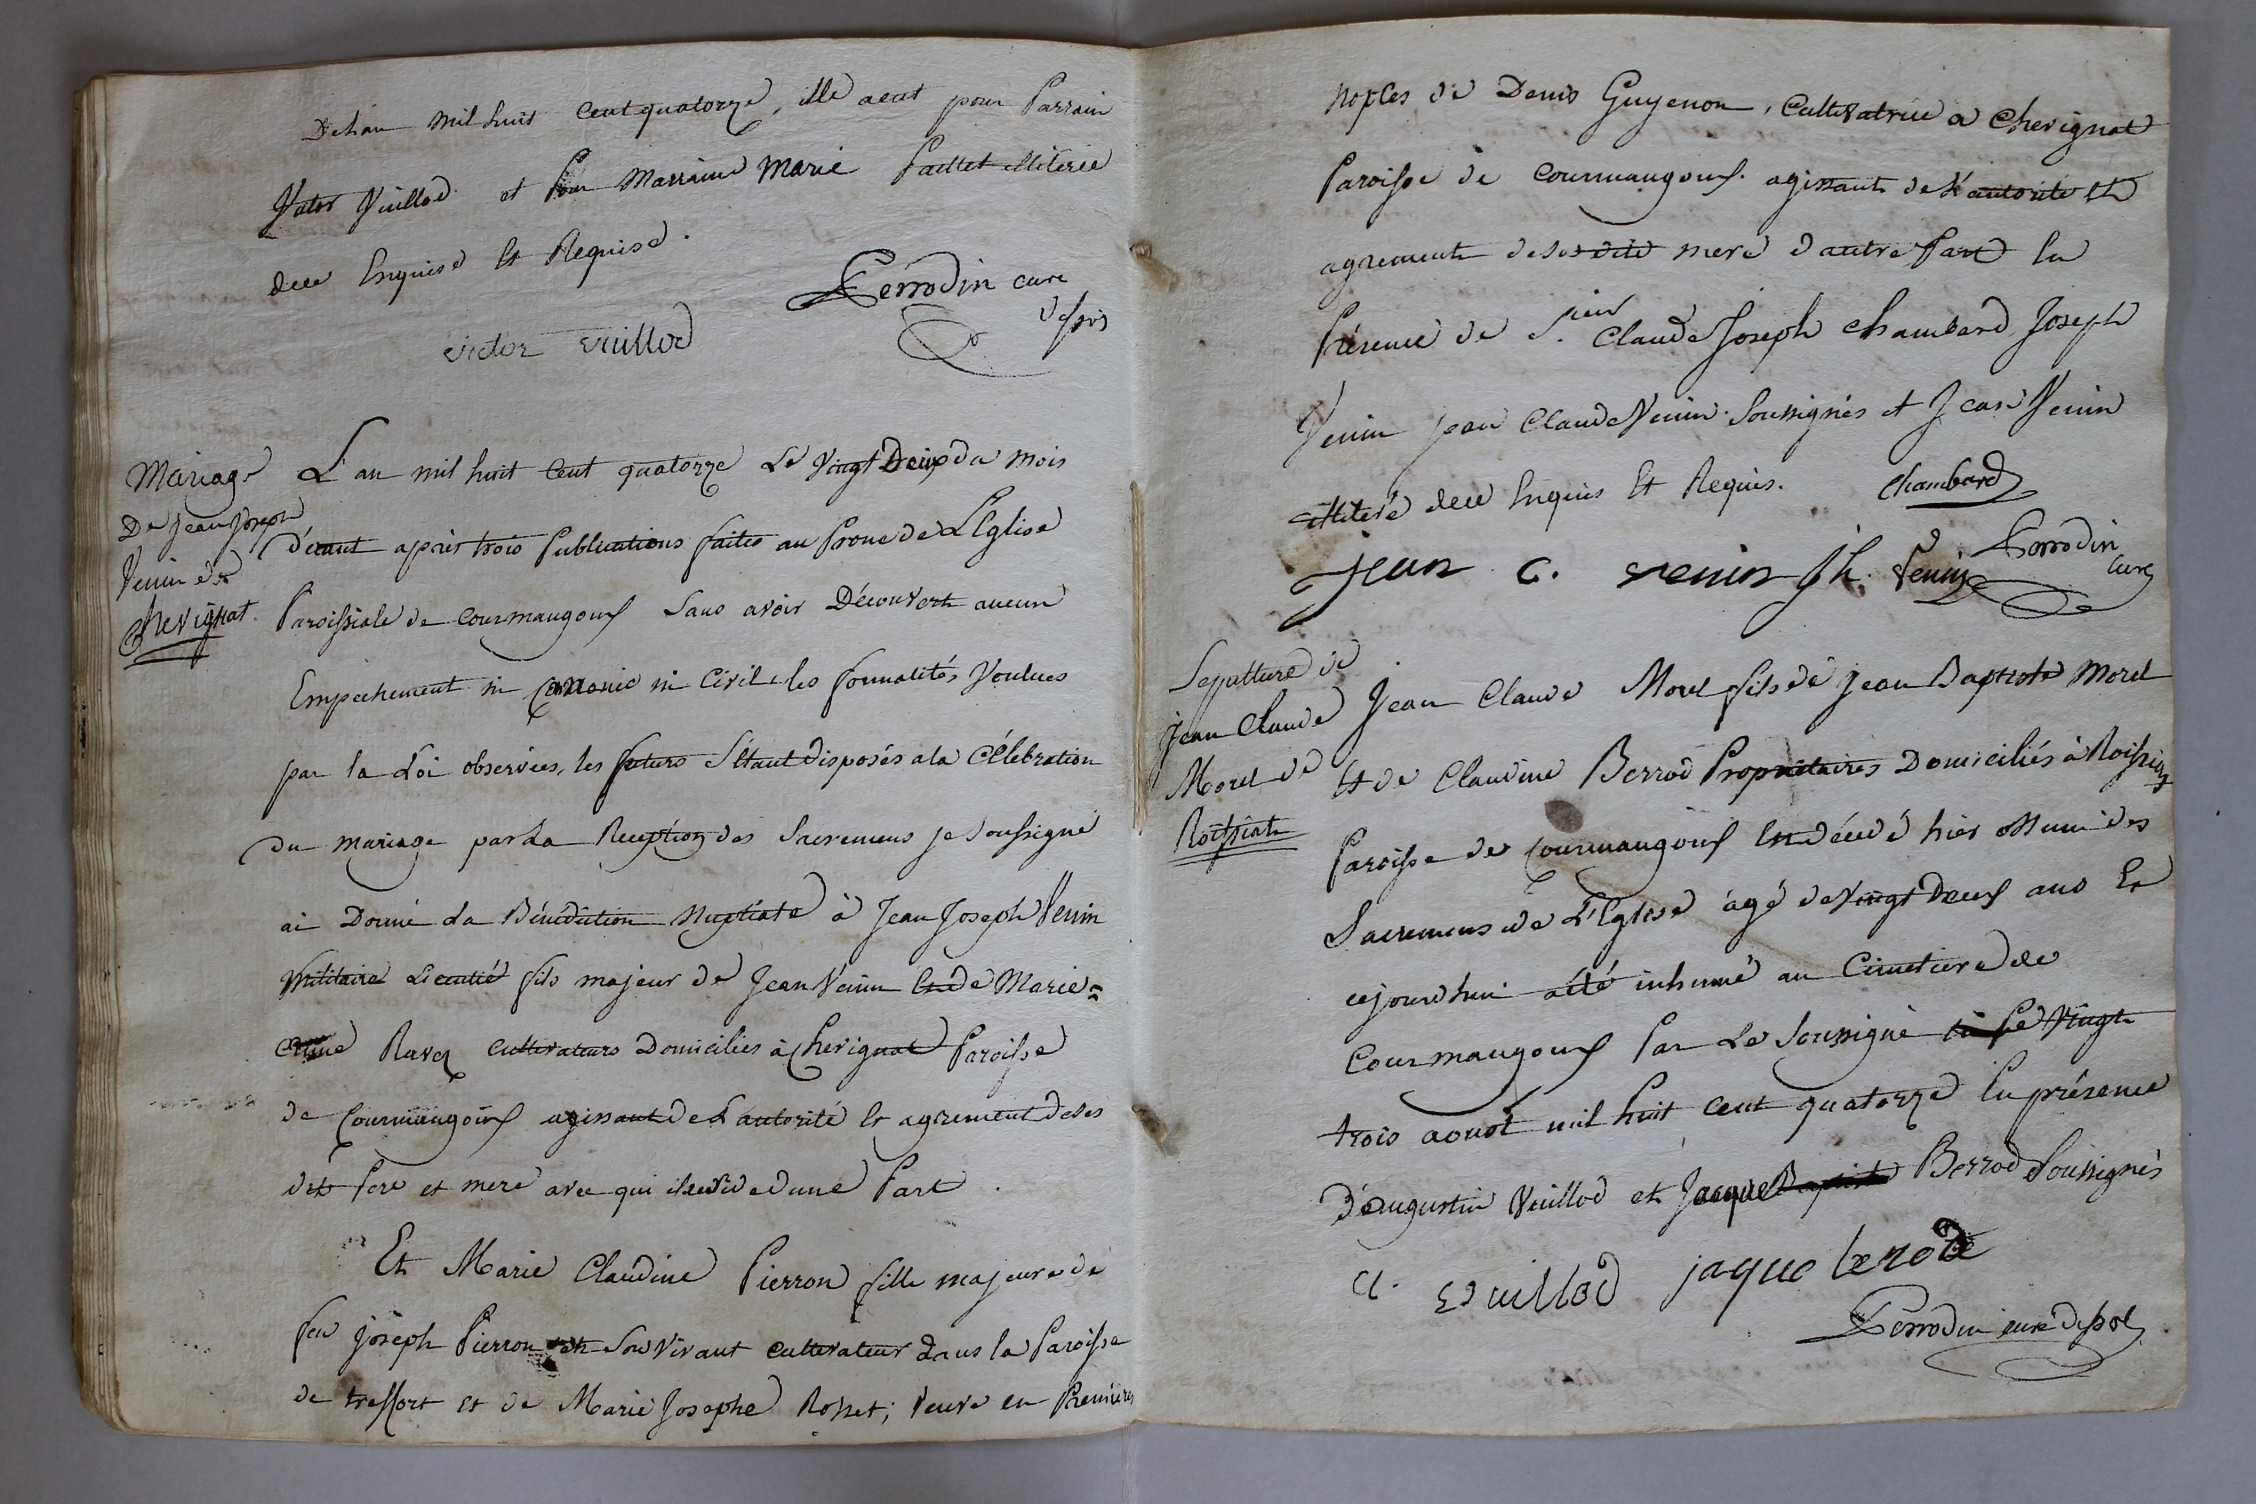 De l'an mil huit cent quatorze, elle a eut pour Parrain
Victor Vuillod et Pour Marraine Marie Paillet illiterée
de ce Enquise et Requise.
Perrodin curé
victor vuillod
Mariage
De Jean Joseph
Venin de
Chevignat.
L'an mil huit Cent quatorze Le Vingt Deux du mois
d'aout après trois Publications faites au Prone de L'Eglise
Paroissiale de Courmangoux Sans avoir Découvert aucun
Empechement ni Canonic ni Civil, les formalités Voulues
par la Loi observées, les futurs S'étant disposés a la Célébration
du mariage par La Reception des Sacremens je soussigné
ai Donné La Bénédiction Nuptiale à Jean Joseph Venin
Militaire Licentié fils majeur de Jean Venin Et de Marie=
Ravet Cultivateurs Domiciliés à Chevignat Paroisse
de Courmangoux agissant de L'autorité et agrement de ses
dits Pere et mere avec qui il reside d'une Part.
Et Marie Claudine Pierron fille majeure de
feu joseph Pierron en Son Vivant Cultivateur dans la Paroisse
de treffort et de Marie Josephe Rosset; Veuve en Premieres
nopces de Denis Guyenon, Cultivatrice a Chevignat
Paroisse de Courmangoux. agissante de L'autorité Et
agrement de sa dite mere d'autre Part En
Présence de S.ieur Claude Joseph Chambard Joseph
Venin jean Claude Venin Soussignés et Jean Venin
illiteré de ce Enquis Et Requis.
Chambard
jean c. venin jh. Venin
Perrodin
curé
Sepulture de
jean Claude
Morel de
Roissiat
Jean Claude Morel fils de Jean Baptiste Morel
Et de Claudine Berrod Propriétaires Domiciliés à Roissiat
Paroisse de Courmangoux Est décédé hier muni des
Sacremens de L'Eglise agé de Vingt Deux ans Et
cejourdhui a été inhumé au Cimetiere de
Courmangoux Par Le Soussigné Le Vingt
trois aoust mil huit cent quatorze En présence
d'augustin Vuillod et Jacque Berrod Soussignés
a. vuillod jaque berod
Perrodin curé